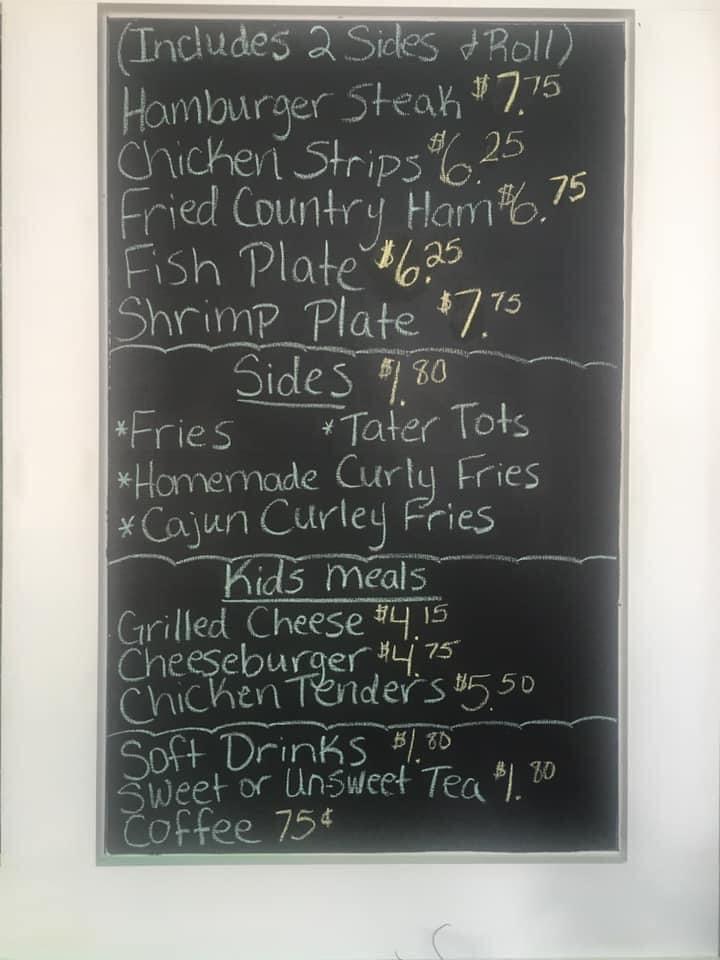 (Includes 2 Sides & Roll)
Hamburger Steak $7.75
Chicken Strips $6.25
Fried Country Ham $6.75
Fish Plate $6.25
Shrimp Plate $7.75
Sides $1.80
*Fries *Tater Tots
*Homemade Curly Fries
*Cajun Curley Fries
Kids meals
Grilled Cheese $4.15
Cheeseburger $4.75
Chicken Tenders $5.50
Soft Drinks $1.80
Sweet or Un-Sweet Tea $1.80
Coffee 75¢